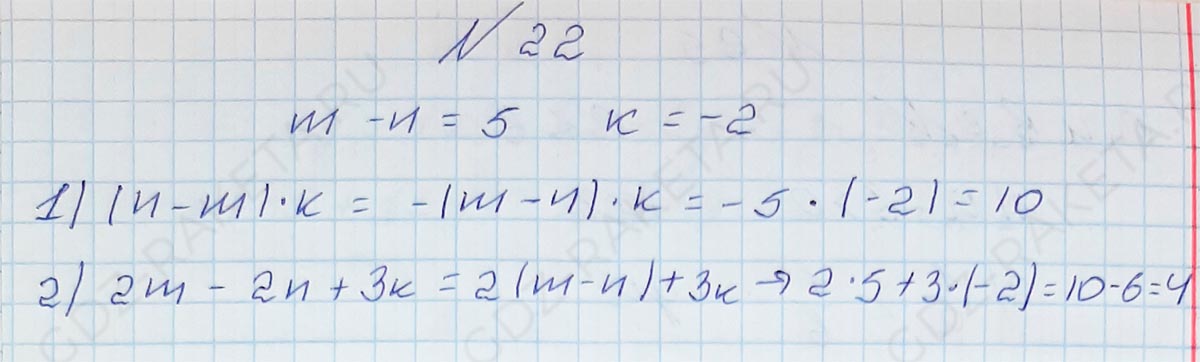 № 22
m - n = 5 k = -2
1) (n - m) · k = -(m - n) · k = -5 · (-2) = 10
2) 2m - 2n + 3k = 2(m-n) + 3k → 2·5+3·(-2)=10-6=4
GDZ-RAKETA.RU